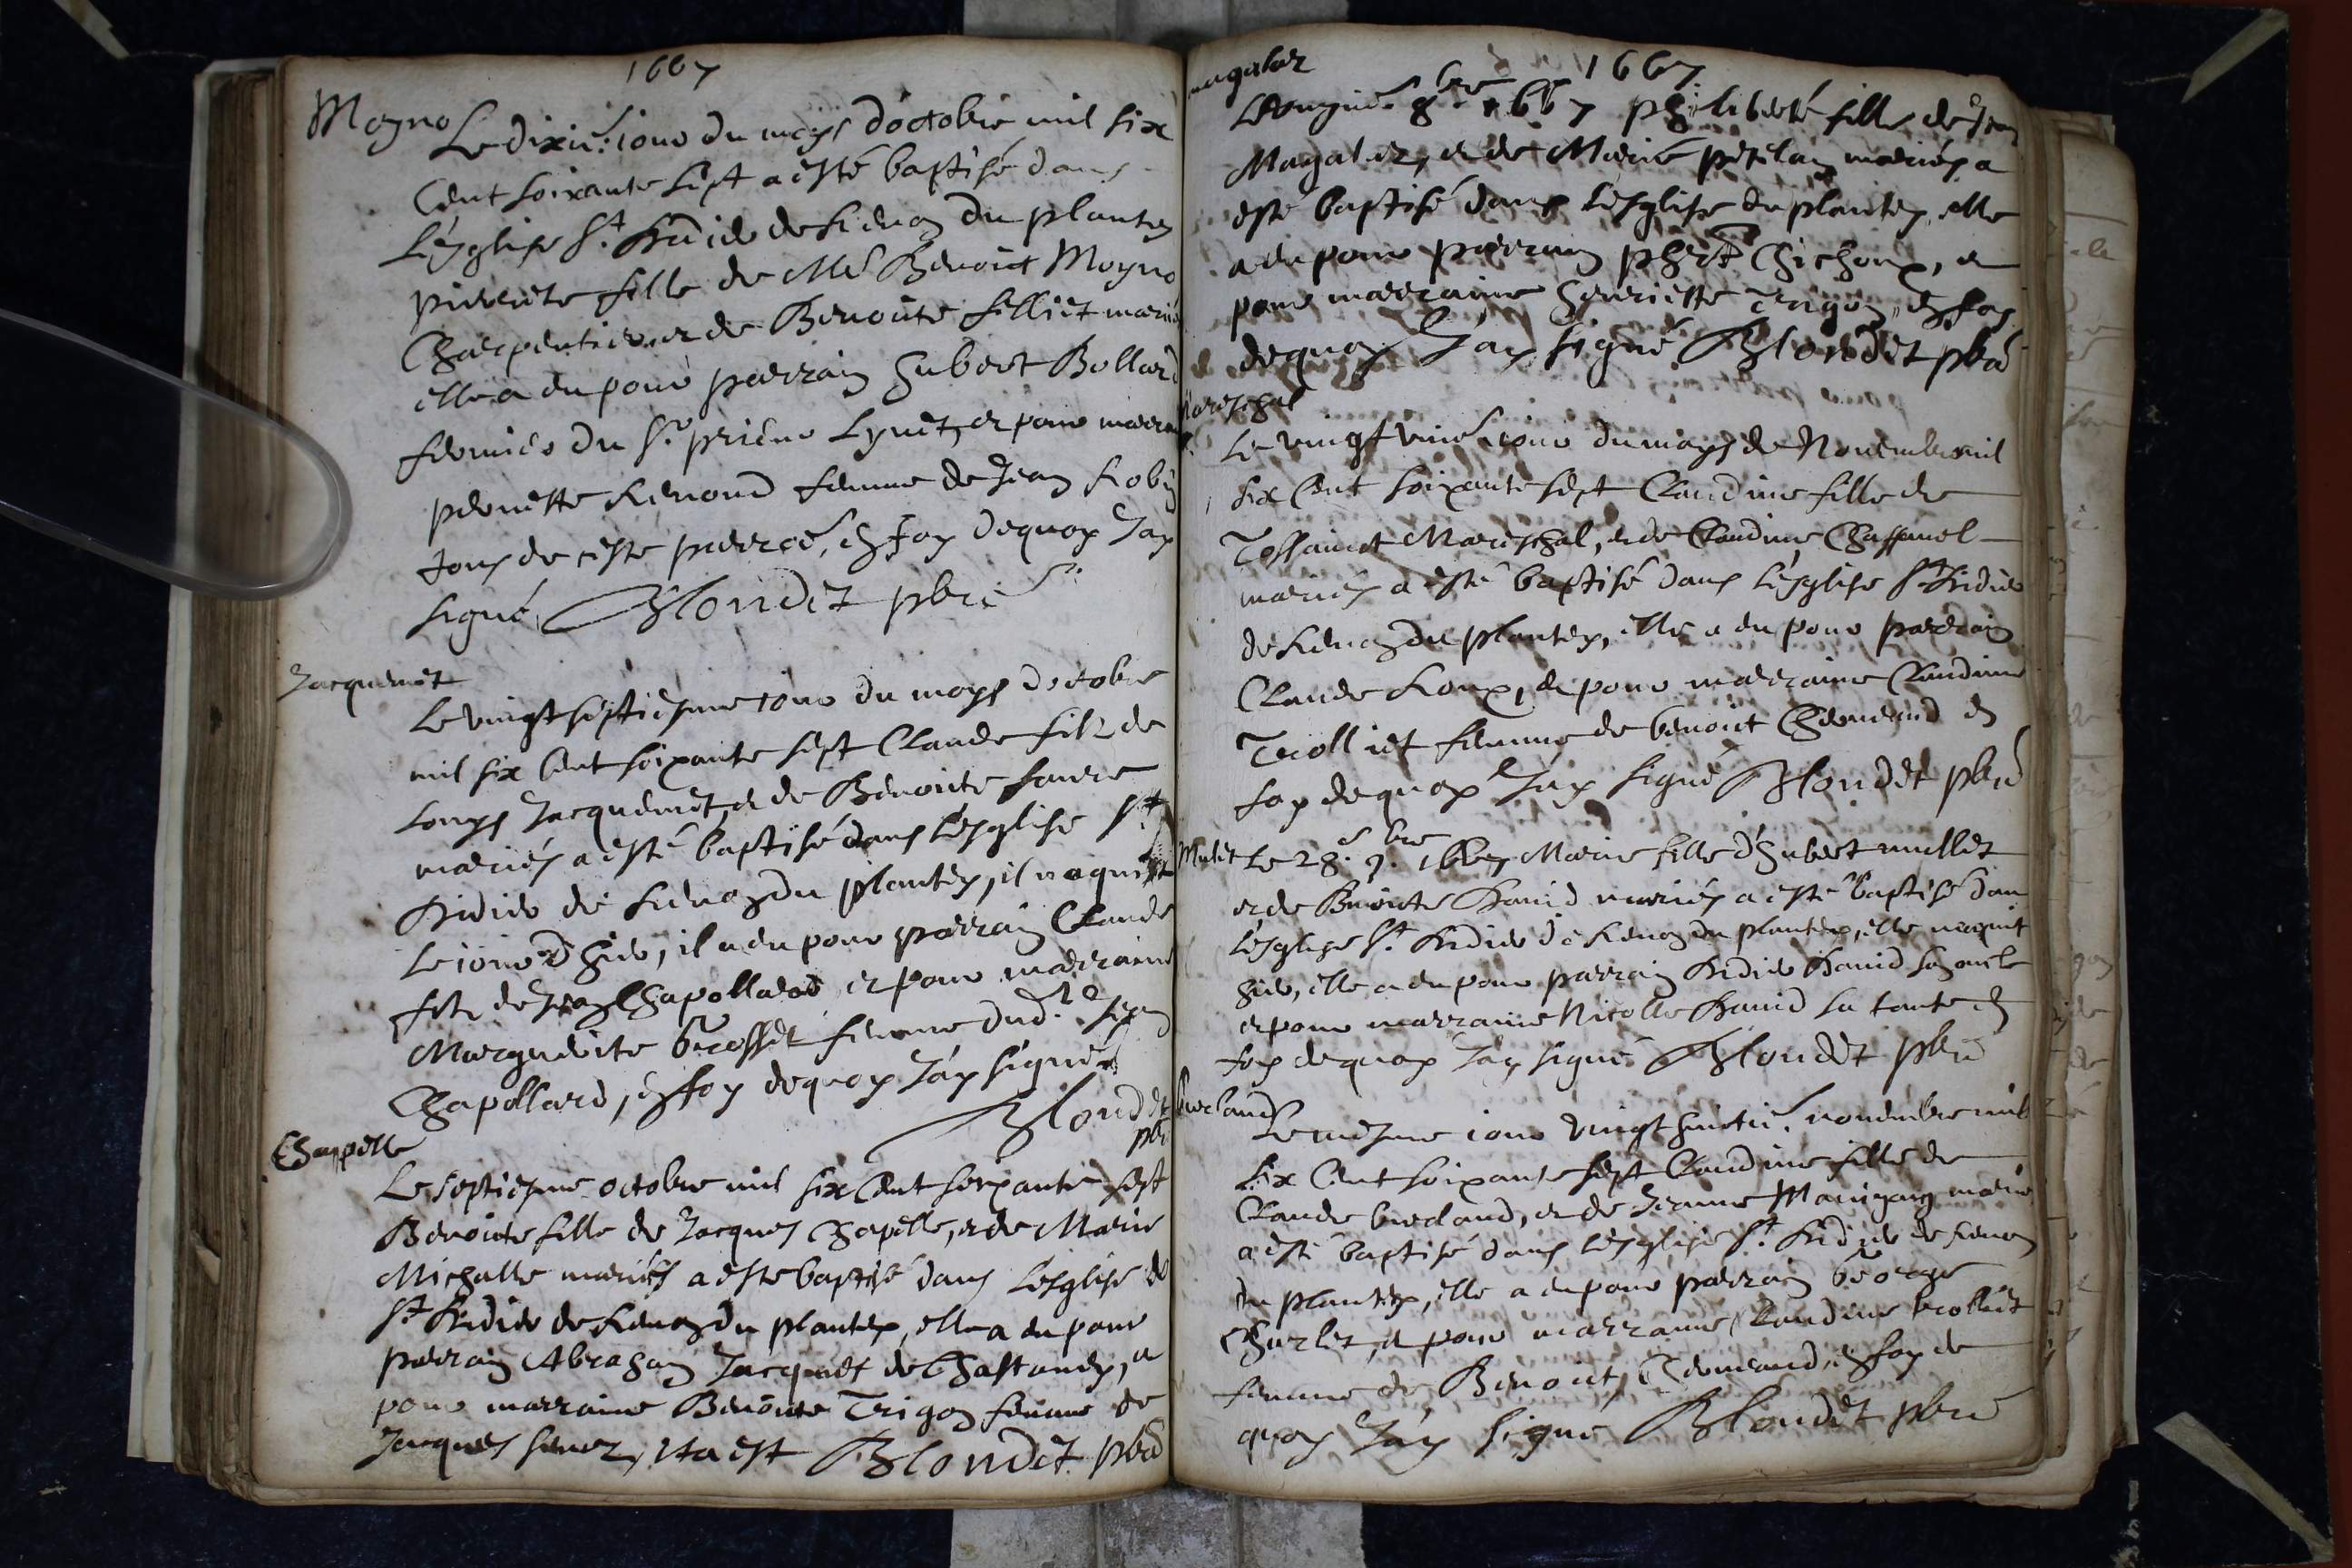 1667
Moyno
Le dixie: iour du moys d'octobre mil six
Cent soixante sept a esté baptisé dans
L'esglise St. Didier de Renon du plantey
pierrette fille de Me Benoict Moyno
Charpentier, et de Benoiste filliet mariés
elle a eu pour parrain hubert Bollard
fermier du Sr. prieur Lynet, et pour marraine
pernette Renoud femme de Jean Robin
tous de ceste parroe, en foy dequoy Jay
signé Blondet pbre
Jacquemet
Le vingtseptiesme iour du moys d'octobre
mil six Cent soixante sept Claude filz de
Louys Jacquemet, et de Benoiste faure
mariés a esté baptisé dans l'esglise St.
Didier de Renon du plantey, il naquist
Le iour d'hier, il a eu pour parrain Claude
filz de Jean Chapollard, et pour marraine
Marguerite brosset femme dud. Jean
Chapollard, en foy dequoy Jáy signé
Blondet
pbre
Chappelle
Le septiesme octobre mil six Cent soixante sept
Benoiste fille de Jacques Chapelle, et de Marie
Michalle mariés a esté baptisé dans L'esglise de
St Didier de Renon du plantey, elle a eu pour
parrain Abraham Jacquet de Chastandey, et
pour marraine Benoiste Trigon femme de
Jacques , Ita est Blondet pbre
magalez
1667
L'onzie. 8bre 1667 philiberte fille de Jean
Magalez, et de Marie petelan mariés a
esté baptisé dans L'esglise du plantey, elle
a eu pour parrain phert Chichoux, et
pour marraine henriette Trigon, en foy
dequoy Jay signé Blondet pbre
Mareschal
Le vingt unie. iour du moys de Nouembre mil
six Cent soixante sept Claudine fille de
Tossainct Mareschal, et de Claudine Chassanel
mariés a esté baptisé dans l'esglise St Didier
de Renon du plantey, elle a eu pour parrain
Claude Roux, et pour marraine Claudine
Trolliet femme de benoict en
foy dequoy Jáy signé Blondet pbre
Mulet
Le 28.e 9.bre 1667 Marie fille d'hubert mullet
et de Benoiste Dauid mariés a esté baptisé dans
L'esglise St. Didier de Renon du plantey, elle naquit
hier, elle a eu pour parrain Didier Dauid son oncle
et pour marraine Nicolle Dauid sa tante en
foy dequoy Jay signé Blondet pbre
breland
Le mesme iour vingt huictie. nouembre mil
six Cent soixante sept Claudine fille de
Claude breland, et de Jeanne mariés
a esté baptisé dans L'esglise St. Didier de Renon
du plantey, elle a eu pour parrain George
Charlet, et pour marraine Claudine trolliet
femme de Benoict , en foy de
quoy Jáy signé Blondet pbre